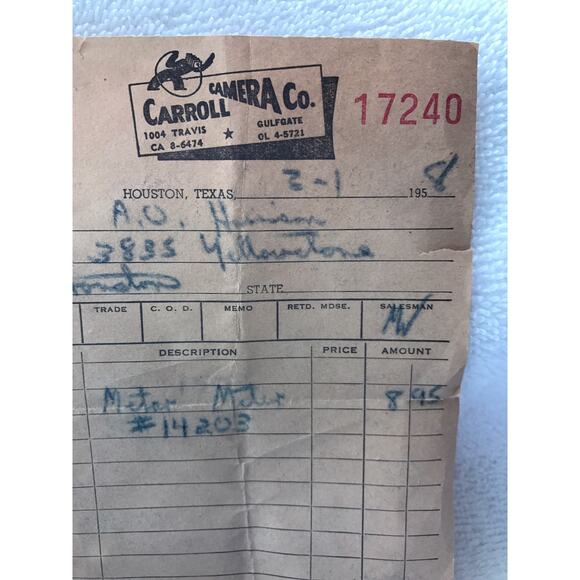 CARROLL CAMERA CO.
1004 TRAVIS ★ GULFGATE
CA 8-6474 OL 4-5721
17240
HOUSTON, TEXAS, 3-1 1958
A.O. Harrison
3835 Yellowstone
STATE
TRADE C. O. D. MEMO RETD. MDSE. SALESMAN
MW
DESCRIPTION PRICE AMOUNT
Meter Meter 8 95
#14203